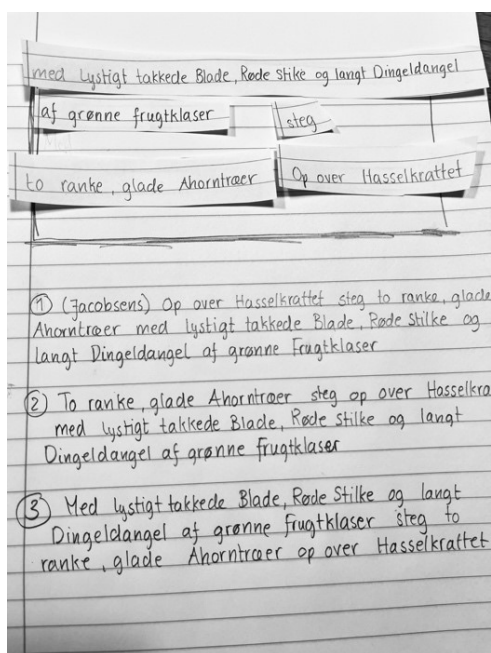 med lystigt takkede Blade, Røde Stike og langt Dingeldangel
af grønne frugtklaser
steg
to ranke, glade Ahorntræer
Op over Hasselkrattet
① (Jacobsens) Op over Hasselkrattet steg to ranke, glade
Ahorntræer med lystigt takkede Blade, Røde Stilke og
langt Dingeldangel af grønne Frugtklaser
② To ranke, glade Ahorntræer steg op over Hasselkra
med lystigt takkede Blade, Røde Stilke og langt
Dingeldangel af grønne frugtklaser
③ Med lystigt takkede Blade, Røde Stilke og langt
Dingeldangel af grønne frugtklaser steg to
ranke, glade Ahorntræer op over Hasselkrattet